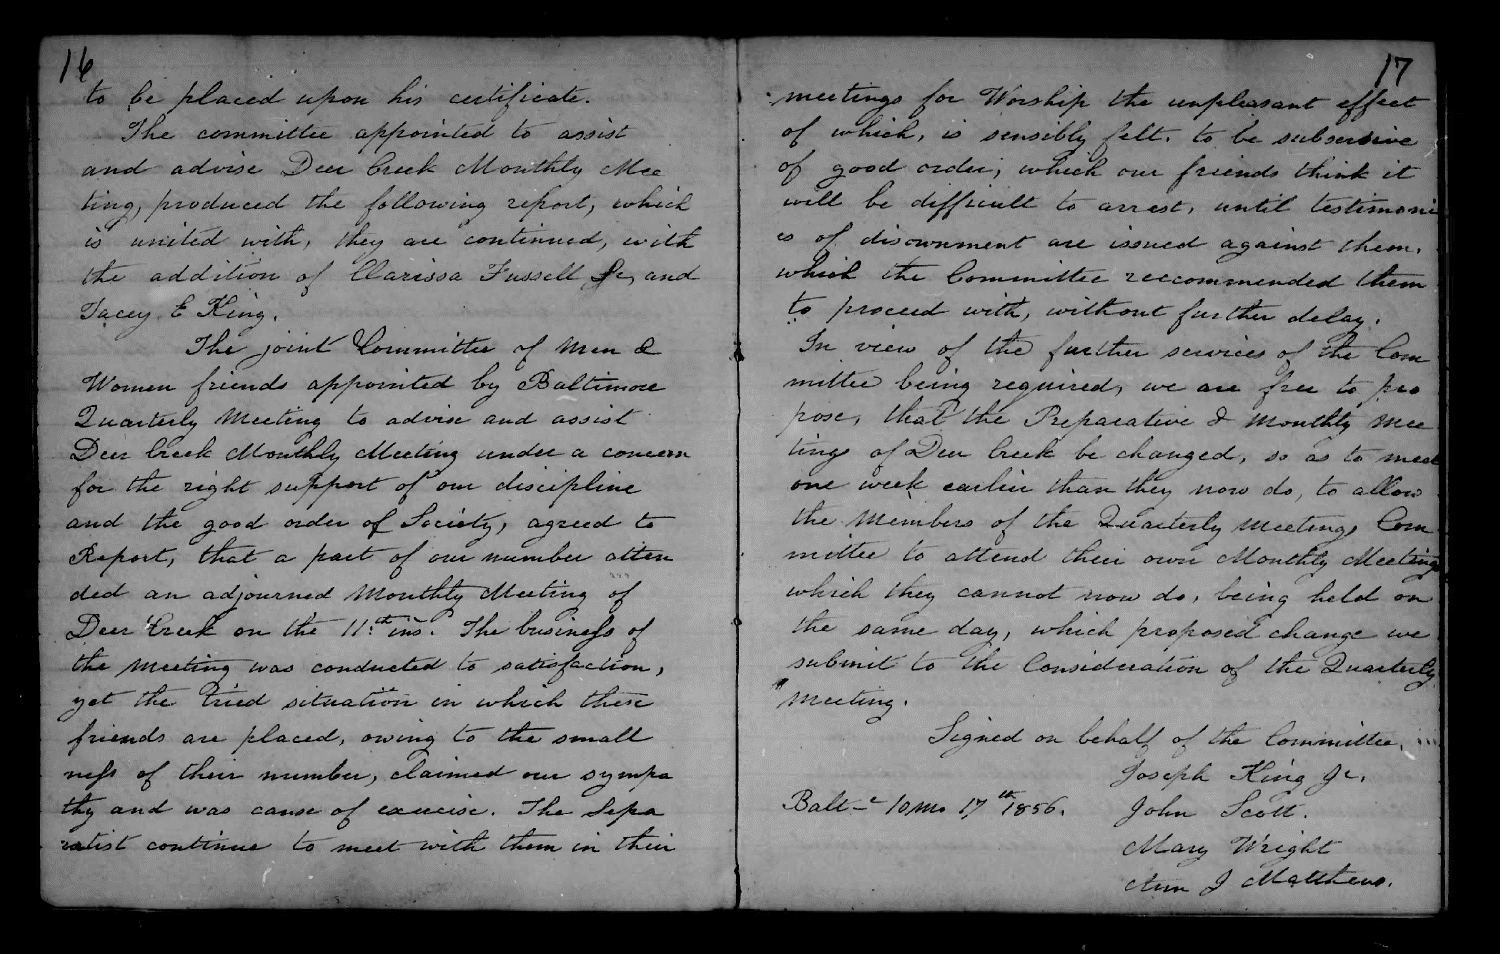 16
to be placed upon his certificate.
The committee appointed to assist
and advise Deer Creek Monthly Mee
ting, produced the following report, which
is united with, they are continued, with
the addition of Clarissa Fussell Jr, and
Tacey E King.
The joint Committee of Men &
Women friends appointed by Baltimore
Quarterly Meeting to advise and assist
Deer Creek Monthly Meeting under a concern
for the right support of our discipline
and the good order of Society, agreed to
Report, that a part of our number atten
ded an adjourned Monthly Meeting of
Deer Creek on the 11th ins. The business of
the meeting was conducted to satisfaction,
yet the tried situation in which these
friends are placed, owing to the small
ness of their number, claimed our sympa
thy and was cause of exercise. The Sepa
ratist continue to meet with them in their
17
meetings for Worship the unpleasant effect
of which, is sensibly felt. to be subversive
of good order; which our friends think it
will be difficult to arrest, until testimoni
es of disownment are issued against them,
which the Committee reccommended them
to proceed with, without further delay.
In view of the further services of the Com
mittee being required, we are free to pro
pose, that the Preparative & Monthly Mee
tings of Deer Creek be changed, so as to meet
one week earlier than they now do, to allow
the Members of the Quarterly Meetings Com
mittee to attend their own Monthly Meetings
which they cannot now do, being held on
the same day, which proposed change we
submit to the Consideration of the Quarterly
Meeting.
Signed on behalf of the Committee,
Joseph King Jr.
Balt-e 10 mo 17th 1856. John Scott.
Mary Wright
Ann J Matthews.